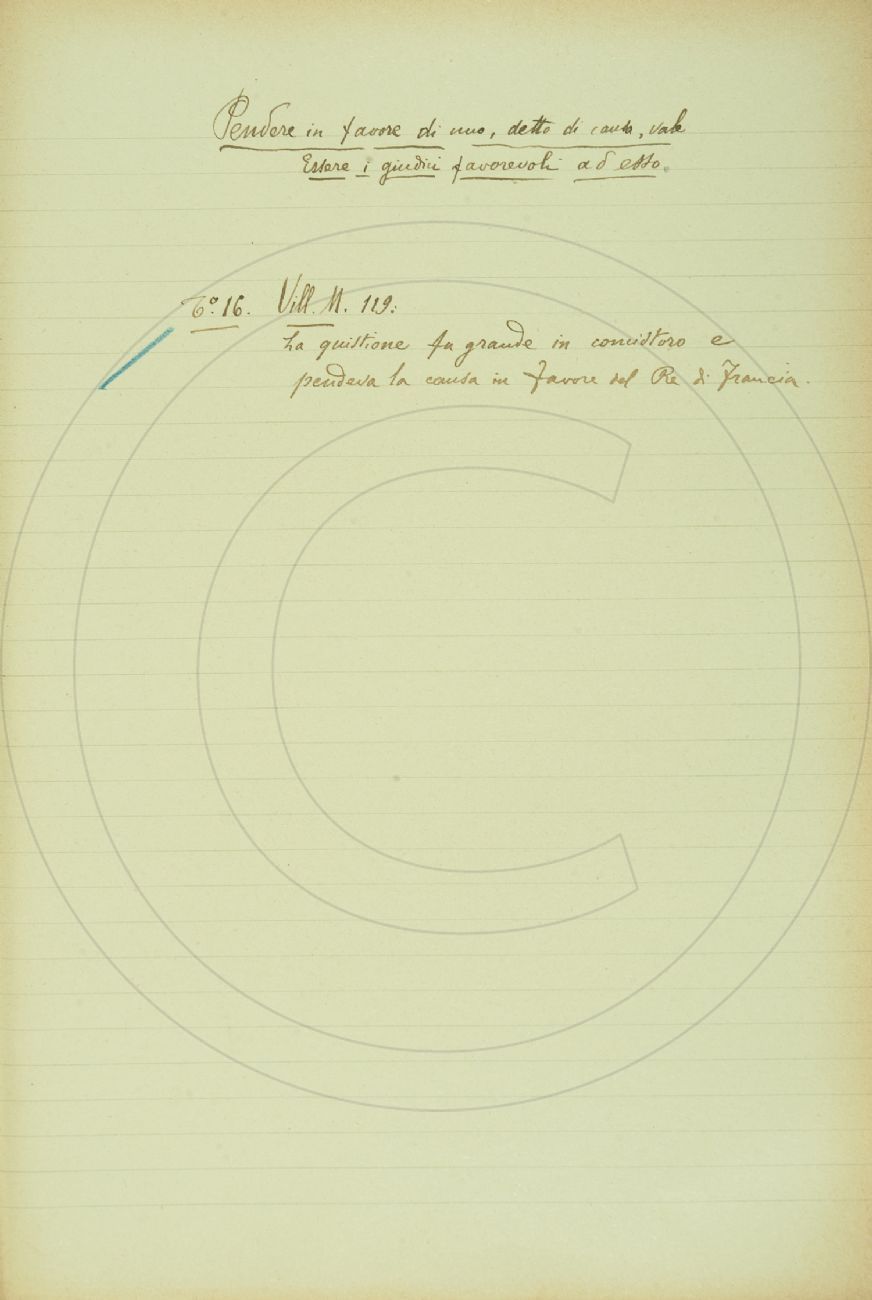 Pendere in favore di uno, detto di causa, vale
Essere i giudici favorevoli ad esso.
To. 16. Vill. M. 119:
La quistione fu grande in concistoro e
pendeva la causa in favore del Re di Francia.